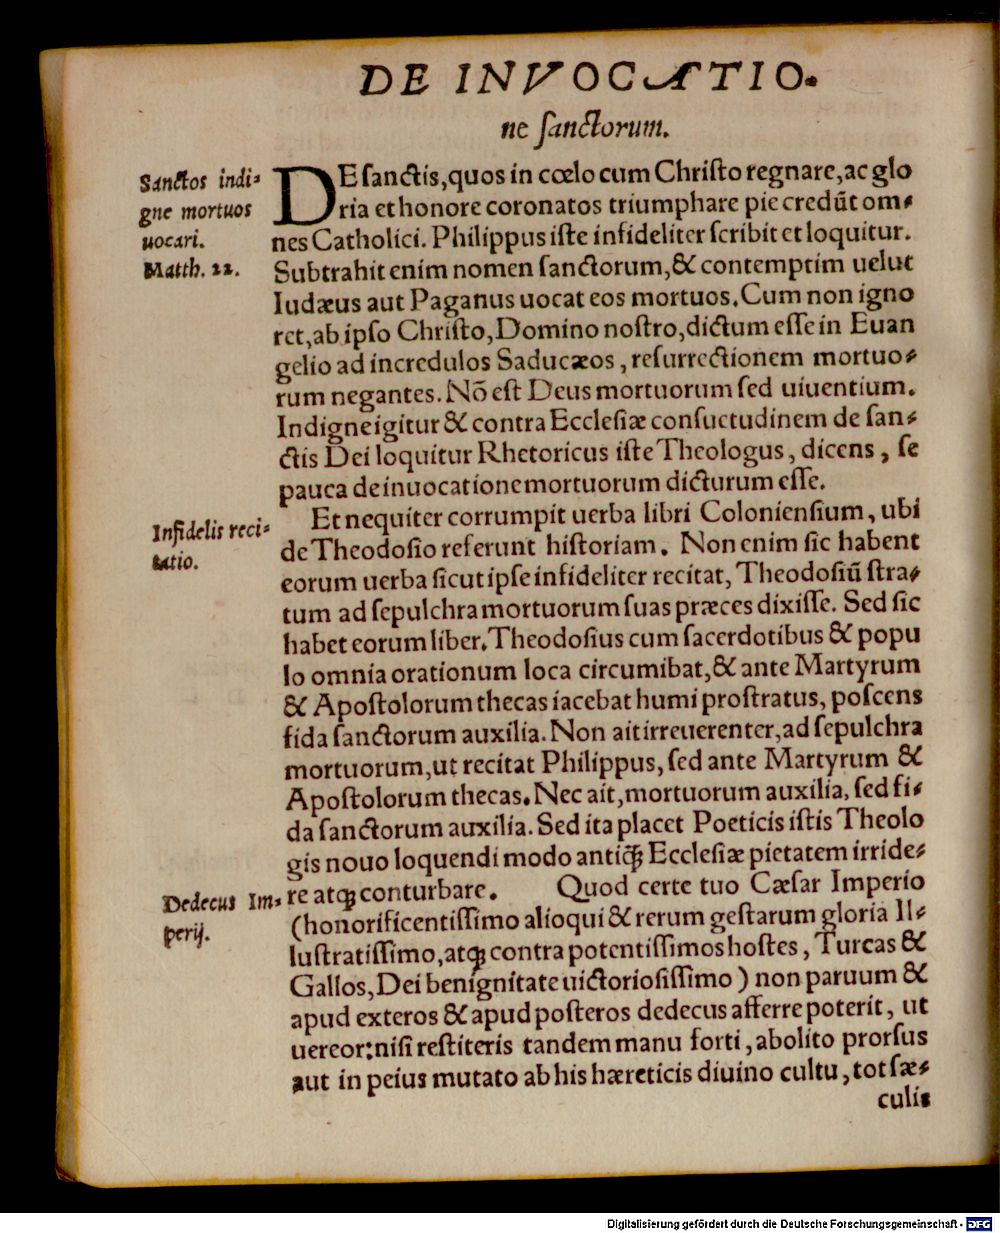 DE INVOCATIO⸗
ne ſanctorum.
Sanctos indi⸗
gne mortuos
uocari.
Matth. 22.
DE ſanctis, quos in cœlo cum Chriſto regnare, ac glo
ria et honore coronatos triumphare pie credūt om⸗
nes Catholici. Philippus iſte infideliter ſcribit et loquitur.
Subtrahit enim nomen ſanctorum, & contemptim uelut
Iudæus aut Paganus uocat eos mortuos. Cum non igno
ret, ab ipſo Chriſto, Domino noſtro, dictum eſſe in Euan
gelio ad incredulos Saducæos, reſurrectionem mortuo⸗
rum negantes. Nō eſt Deus mortuorum ſed uiuentium.
Indigne igitur & contra Eccleſiæ conſuetudinem de ſan⸗
ctis Dei loquitur Rhetoricus iſte Theologus, dicens, ſe
pauca de inuocatione mortuorum dicturum eſſe.
Infidelis reci⸗
tatio.
Et nequiter corrumpit uerba libri Colonienſium, ubi
de Theodoſio referunt hiſtoriam. Non enim ſic habent
eorum uerba ſicut ipſe infideliter recitat, Theodoſiū ſtra⸗
tum ad ſepulchra mortuorum ſuas præces dixiſſe. Sed ſic
habet eorum liber. Theodoſius cum ſacerdotibus & popu
lo omnia orationum loca circumibat, & ante Martyrum
& Apoſtolorum thecas iacebat humi proſtratus, poſcens
fida ſanctorum auxilia. Non ait irreuerenter, ad ſepulchra
mortuorum, ut recitat Philippus, ſed ante Martyrum &
Apoſtolorum thecas. Nec ait, mortuorum auxilia, ſed fi⸗
da ſanctorum auxilia. Sed ita placet Poeticis iſtis Theolo
gis nouo loquendi modo antiqꝫ Eccleſiæ pietatem irride⸗
re atqꝫ conturbare. Quod certe tuo Cæſar Imperio
Dedecus Im⸗
perij.
(honorificentiſſimo alioqui & rerum geſtarum gloria Il⸗
luſtratiſſimo, atqꝫ contra potentiſſimos hoſtes, Turcas &
Gallos, Dei benignitate uictorioſiſſimo) non paruum &
apud exteros & apud poſteros dedecus afferre poterit, ut
uereor: niſi reſtiteris tandem manu forti, abolito prorſus
aut in peius mutato ab his hæreticis diuino cultu, tot ſæ⸗
culis
Digitalisierung gefördert durch die Deutsche Forschungsgemeinschaft - DFG